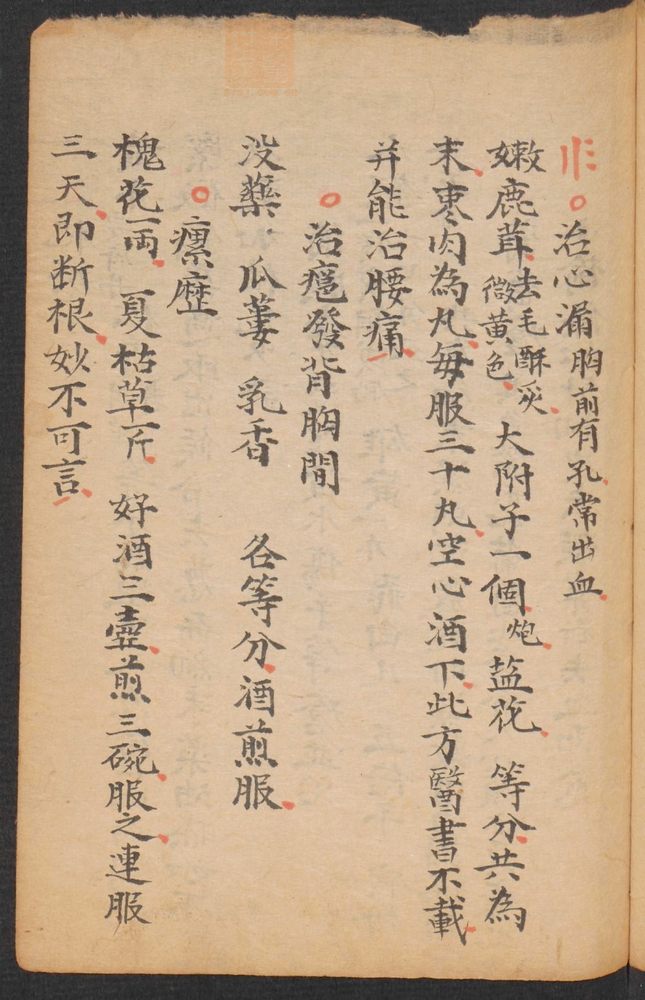 治心漏胸前有孔常出血
嫩鹿茸去毛酥炙微黄色大附子一個炮盐花等分共為
末枣肉為丸每服三十丸空心酒下此方醫書不載
并能治腰痛
治瘟發背胸間
没藥 瓜蔞 乳香 各等分酒煎服
瘰歴
槐花一両 夏枯草一斤 好酒三壶煎三碗服之連服
三天即断根妙不可言